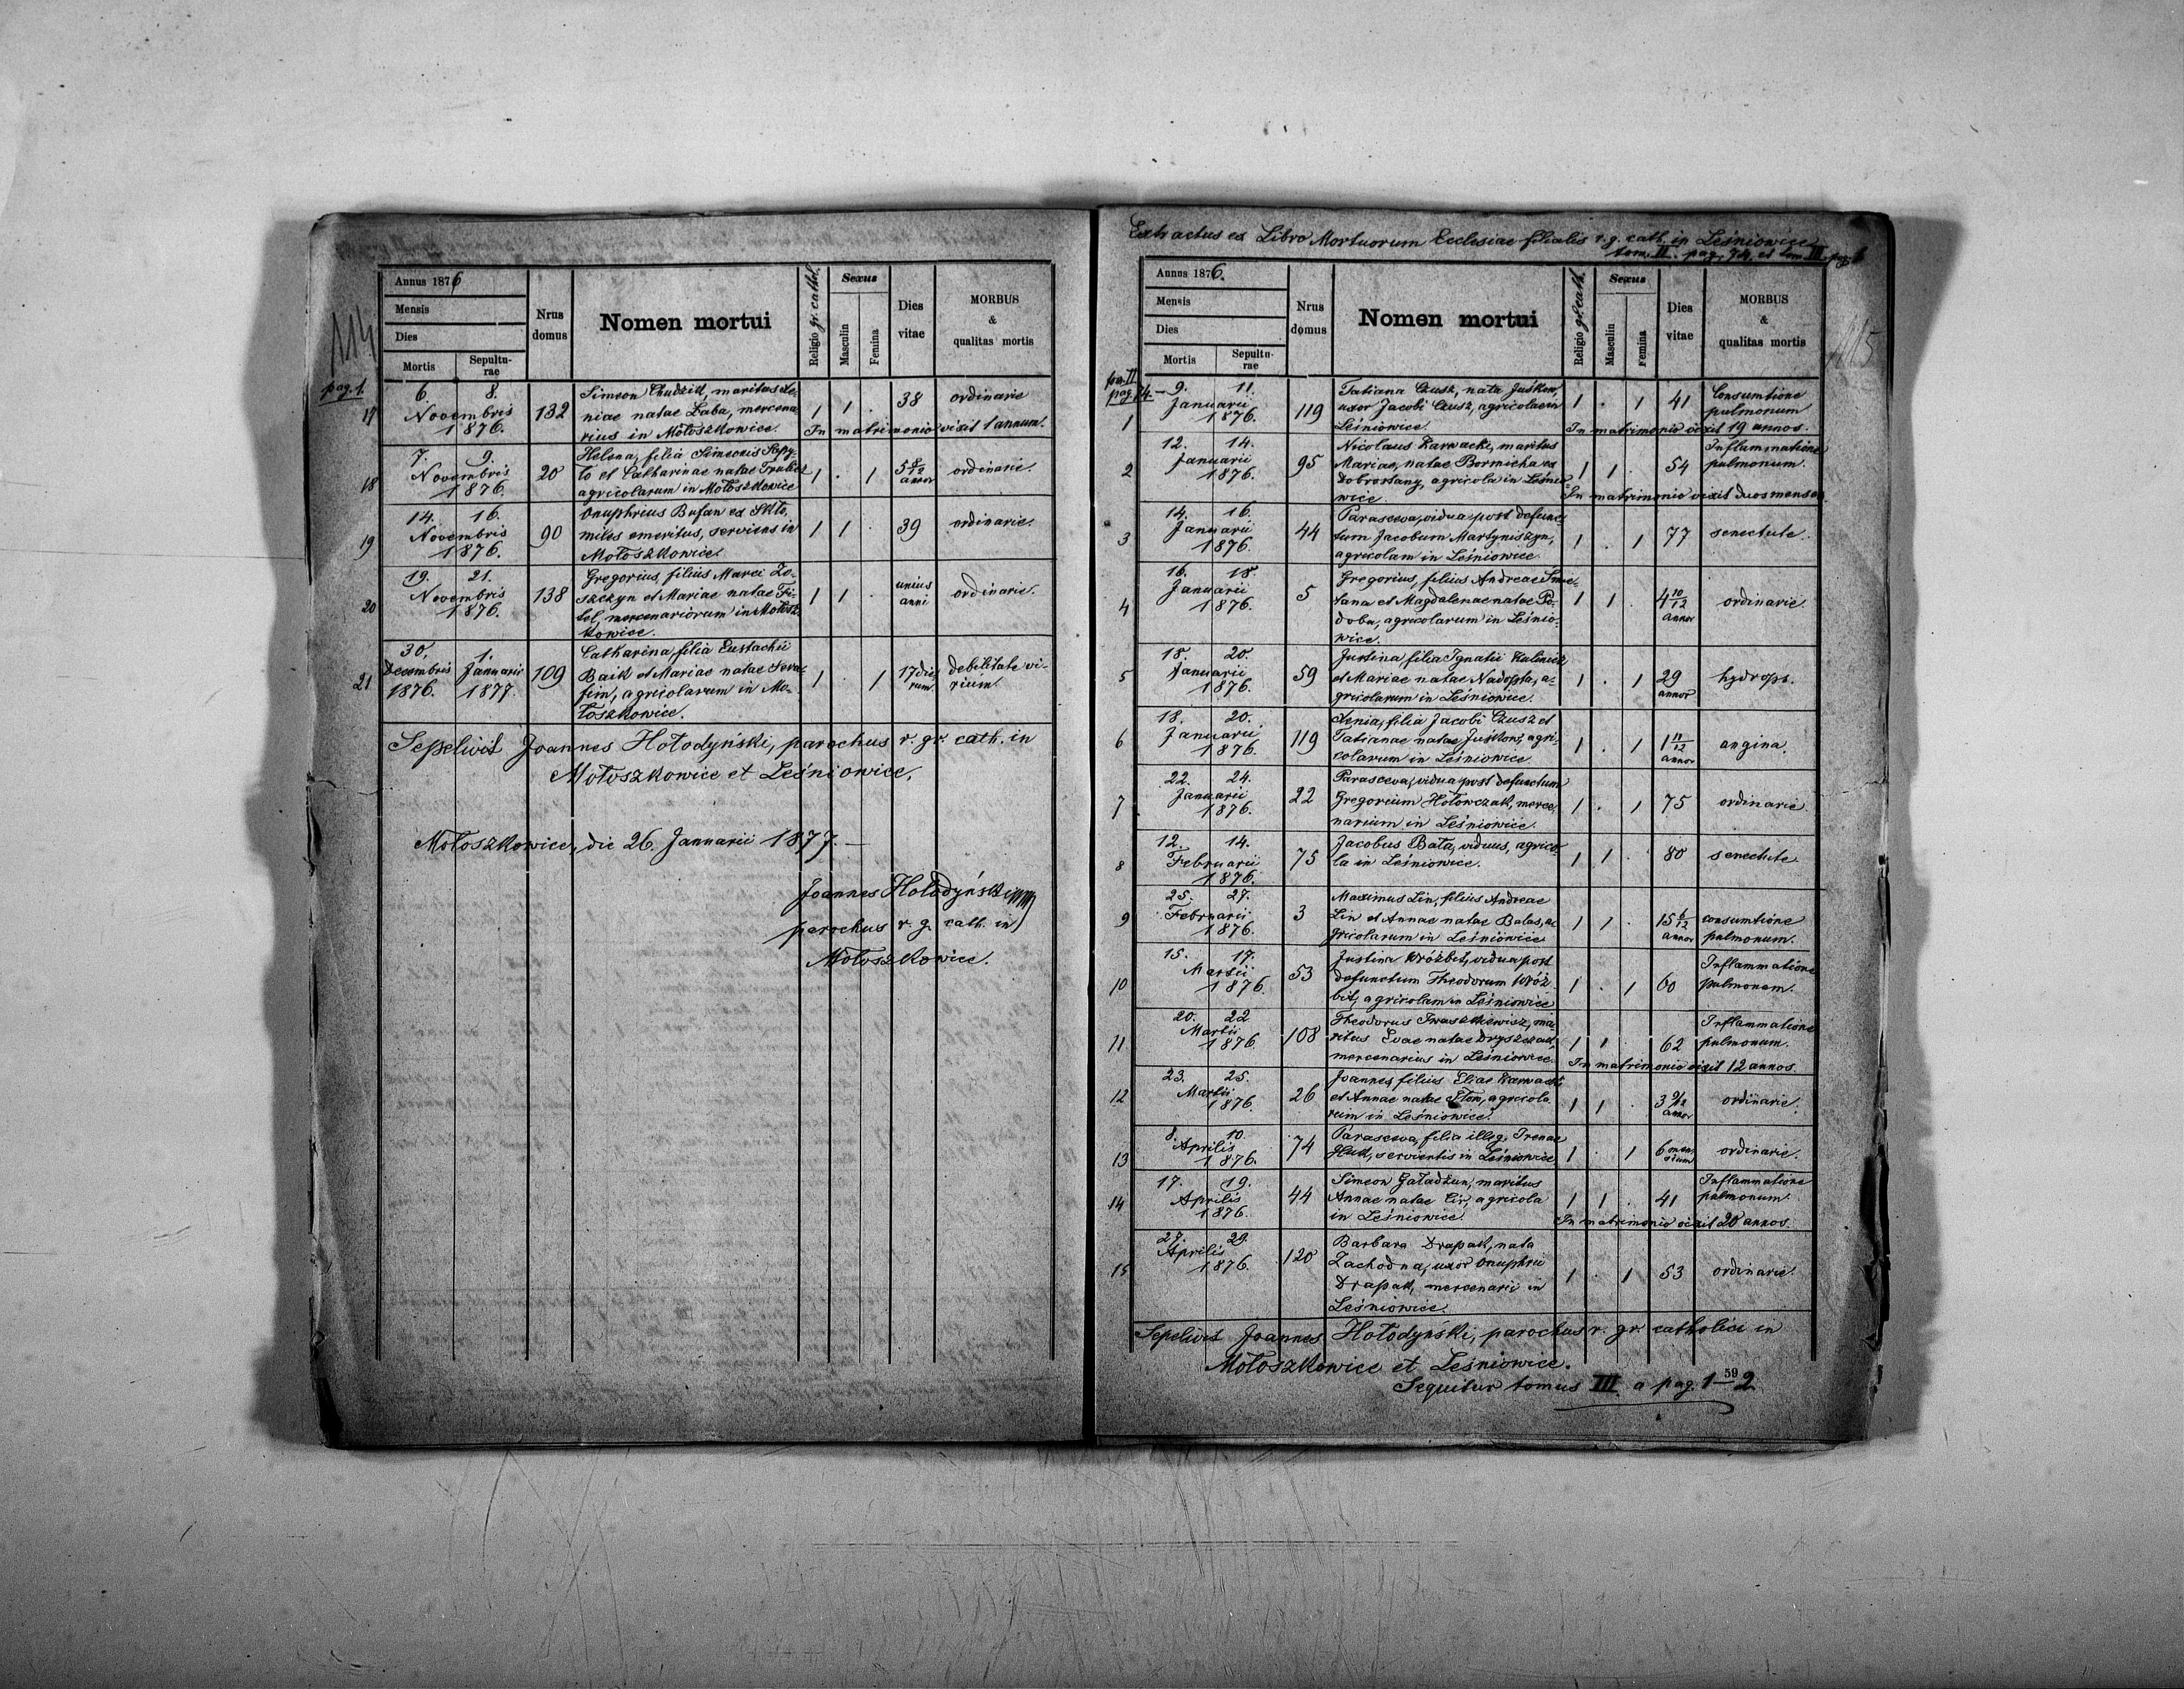 114
Annus 1876
Mensis
Dies
Mortis
Sepultu-
rae
Nrus
domus
Nomen mortui
Religio gr. cathol.
Sexus
Masculin
Femina
Dies
vitae
MORBUS
&
qualitas mortis
pag. 1.
17
6. 8.
Novembris
1876.
132
Simeon Chudzik, maritus Xe-
niae natae Baba, mercena-
rius in Mołoszkowice.
1 1 .
38
ordinarie
In matrimonio vixit 1 annum.
18
7. 9.
Novembris
1876.
20
Helena, filia Simeonis
to et Catharinae natae
agricolarum in Mołoszkowice
1 . 1
5 8/12
annor
ordinarie.
19
14. 16.
Novembris
1876.
90
Onuphrius Bufan ex
miles emeritus, serviens in
Mołoszkowice.
1 1 .
39
ordinarie.
20
19. 21.
Novembris
1876.
138
Gregorius, filius Marci Zo-
szczyn et Mariae natae Fi-
tel, mercenariorum in Mołosz-
kowice.
1 1 .
unius
anni
ordinarie.
21
30. 1.
Decembris Januarii
1876. 1877.
109
Catharina, filia Eustachii
Baik et Mariae natae Sera-
fin, agricolarum in Mo-
łoszkowice.
1 . 1
17 die-
rum
debilitate vi-
rium.
Sepelivit Joannes Hołodyński, parochus r. gr. cath. in
Mołoszkowice et Leśniowice.
Mołoszkowice, die 26. Januarii 1877. —
Joannes Hołodyński mp
parochus r. g. cath. in
Mołoszkowice.
Extractus ex Libro Mortuorum Ecclesiae filialis r. g. cath. in Leśniowice
tom. II. pag. 74, et tom. III. pag. 1
115
Annus 1876.
Mensis
Dies
Mortis
Sepultu-
rae
Nrus
domus
Nomen mortui
Religio gr. cath.
Sexus
Masculin
Femina
Dies
vitae
MORBUS
&
qualitas mortis
tom. II
pag. 74.
1
9. 11.
Januarii
1876.
119
Tatiana Czusz, nata Juśkow,
uxor Jacobi Czusz, agricolae in
Leśniowice.
1 . 1
41
Consumtione
pulmonum
In matrimonio vixit 19 annos.
2
12. 14.
Januarii
1876.
95
Nicolaus Karwacki, maritus
Mariae, natae Bormicha ex
Dobrostany, agricola in Leśnio-
wice.
1 1 .
54
Inflammatione
pulmonum.
In matrimonio vixit duos menses
3
14. 16.
Januarii
1876.
44
Parasceva, vidua post defunc-
tum Jacobum Martyniszyn,
agricolam in Leśniowice.
1 . 1
77
senectute.
4
16. 18.
Januarii
1876.
5
Gregorius, filius Andreae Smie-
tana et Magdalenae natae Po-
doba, agricolarum in Leśnio-
wice.
1 1 .
4 10/12
annor
ordinarie.
5
18. 20.
Januarii
1876.
59
Justina, filia Ignatii Kalinicz
et Mariae natae Nadopta, a-
gricolarum in Leśniowice.
1 . 1
29
annor
hydrops.
6
18. 20.
Januarii
1876.
119
Xenia, filia Jacobi Czusz et
Tatianae natae Juśkow, agri-
colarum in Leśniowice.
1 . 1
1 11/12
annor
angina.
7
22. 24.
Januarii
1876.
22
Parasceva, vidua post defunctum
Gregorium Hołowczak, merce-
narium in Leśniowice.
1 . 1
75
ordinarie
8
12. 14.
Februarii
1876.
75
Jacobus Bała, viduus, agrico-
la in Leśniowice.
1 1 .
80
senectute
9
25. 27.
Februarii
1876.
3
Maximus Lin, filius Andreae
Lin et Annae natae Balas, a-
gricolarum in Leśniowice
1 1 .
15 6/12
annor
consumtione
pulmonum.
10
15. 17.
Martii
1876.
53
Justina Wróżbit, vidua post
defunctum Theodorum Wróż-
bit, agricolam in Leśniowice
1 . 1
60
Inflammatione
pulmonum.
11
20. 22
Martii
1876.
108
Theodorus Iwaszkiewicz, ma-
ritus Evae natae Dryszczak,
mercenarius in Leśniowice.
1 1 .
62
Inflammatione
pulmonum.
In matrimonio vixit 12 annos.
12
23. 25.
Martii
1876.
26
Joannes, filius Eliae Karwacki,
et Annae natae agricola-
rum in Leśniowice.
1 1 .
3 9/12
annor
ordinarie.
13
8. 10.
Aprilis
1876.
74
Parasceva, filia illeg. Irenae
Huk, servientis in Leśniowice
1 . 1
6 men-
sium
ordinarie.
14
17. 19.
Aprilis
1876.
44
Simeon Gaładzun, maritus
Annae natae Cir, agricola
in Leśniowice.
1 1 .
41
Inflammatione
pulmonum.
In matrimonio vixit 20 annos.
15
27. 29.
Aprilis
1876.
120
Barbara Drapak, nata
Zachodna, uxor Onuphrii
Drapak, mercenarii in
Leśniowice.
1 . 1
53
ordinarie.
Sepelivit Joannes Hołodyński, parochus r. gr. catholici in
Mołoszkowice et Leśniowice.
59
Sequitur tomus III. a pag. 1—2